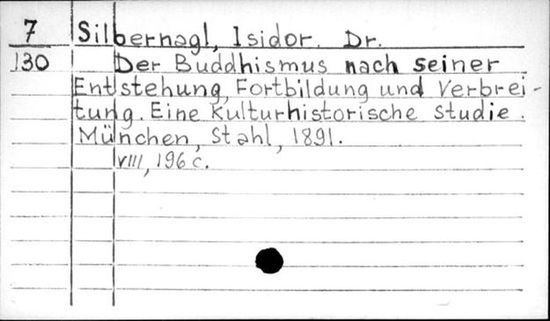 7 Silbernagl, Isidor. Dr.
130 Der Buddhismus nach seiner
Entstehung, Fortbildung und Verbrei-
tung. Eine kulturhistorische Studie.
München, Stahl, 1891.
VIII, 196 c.